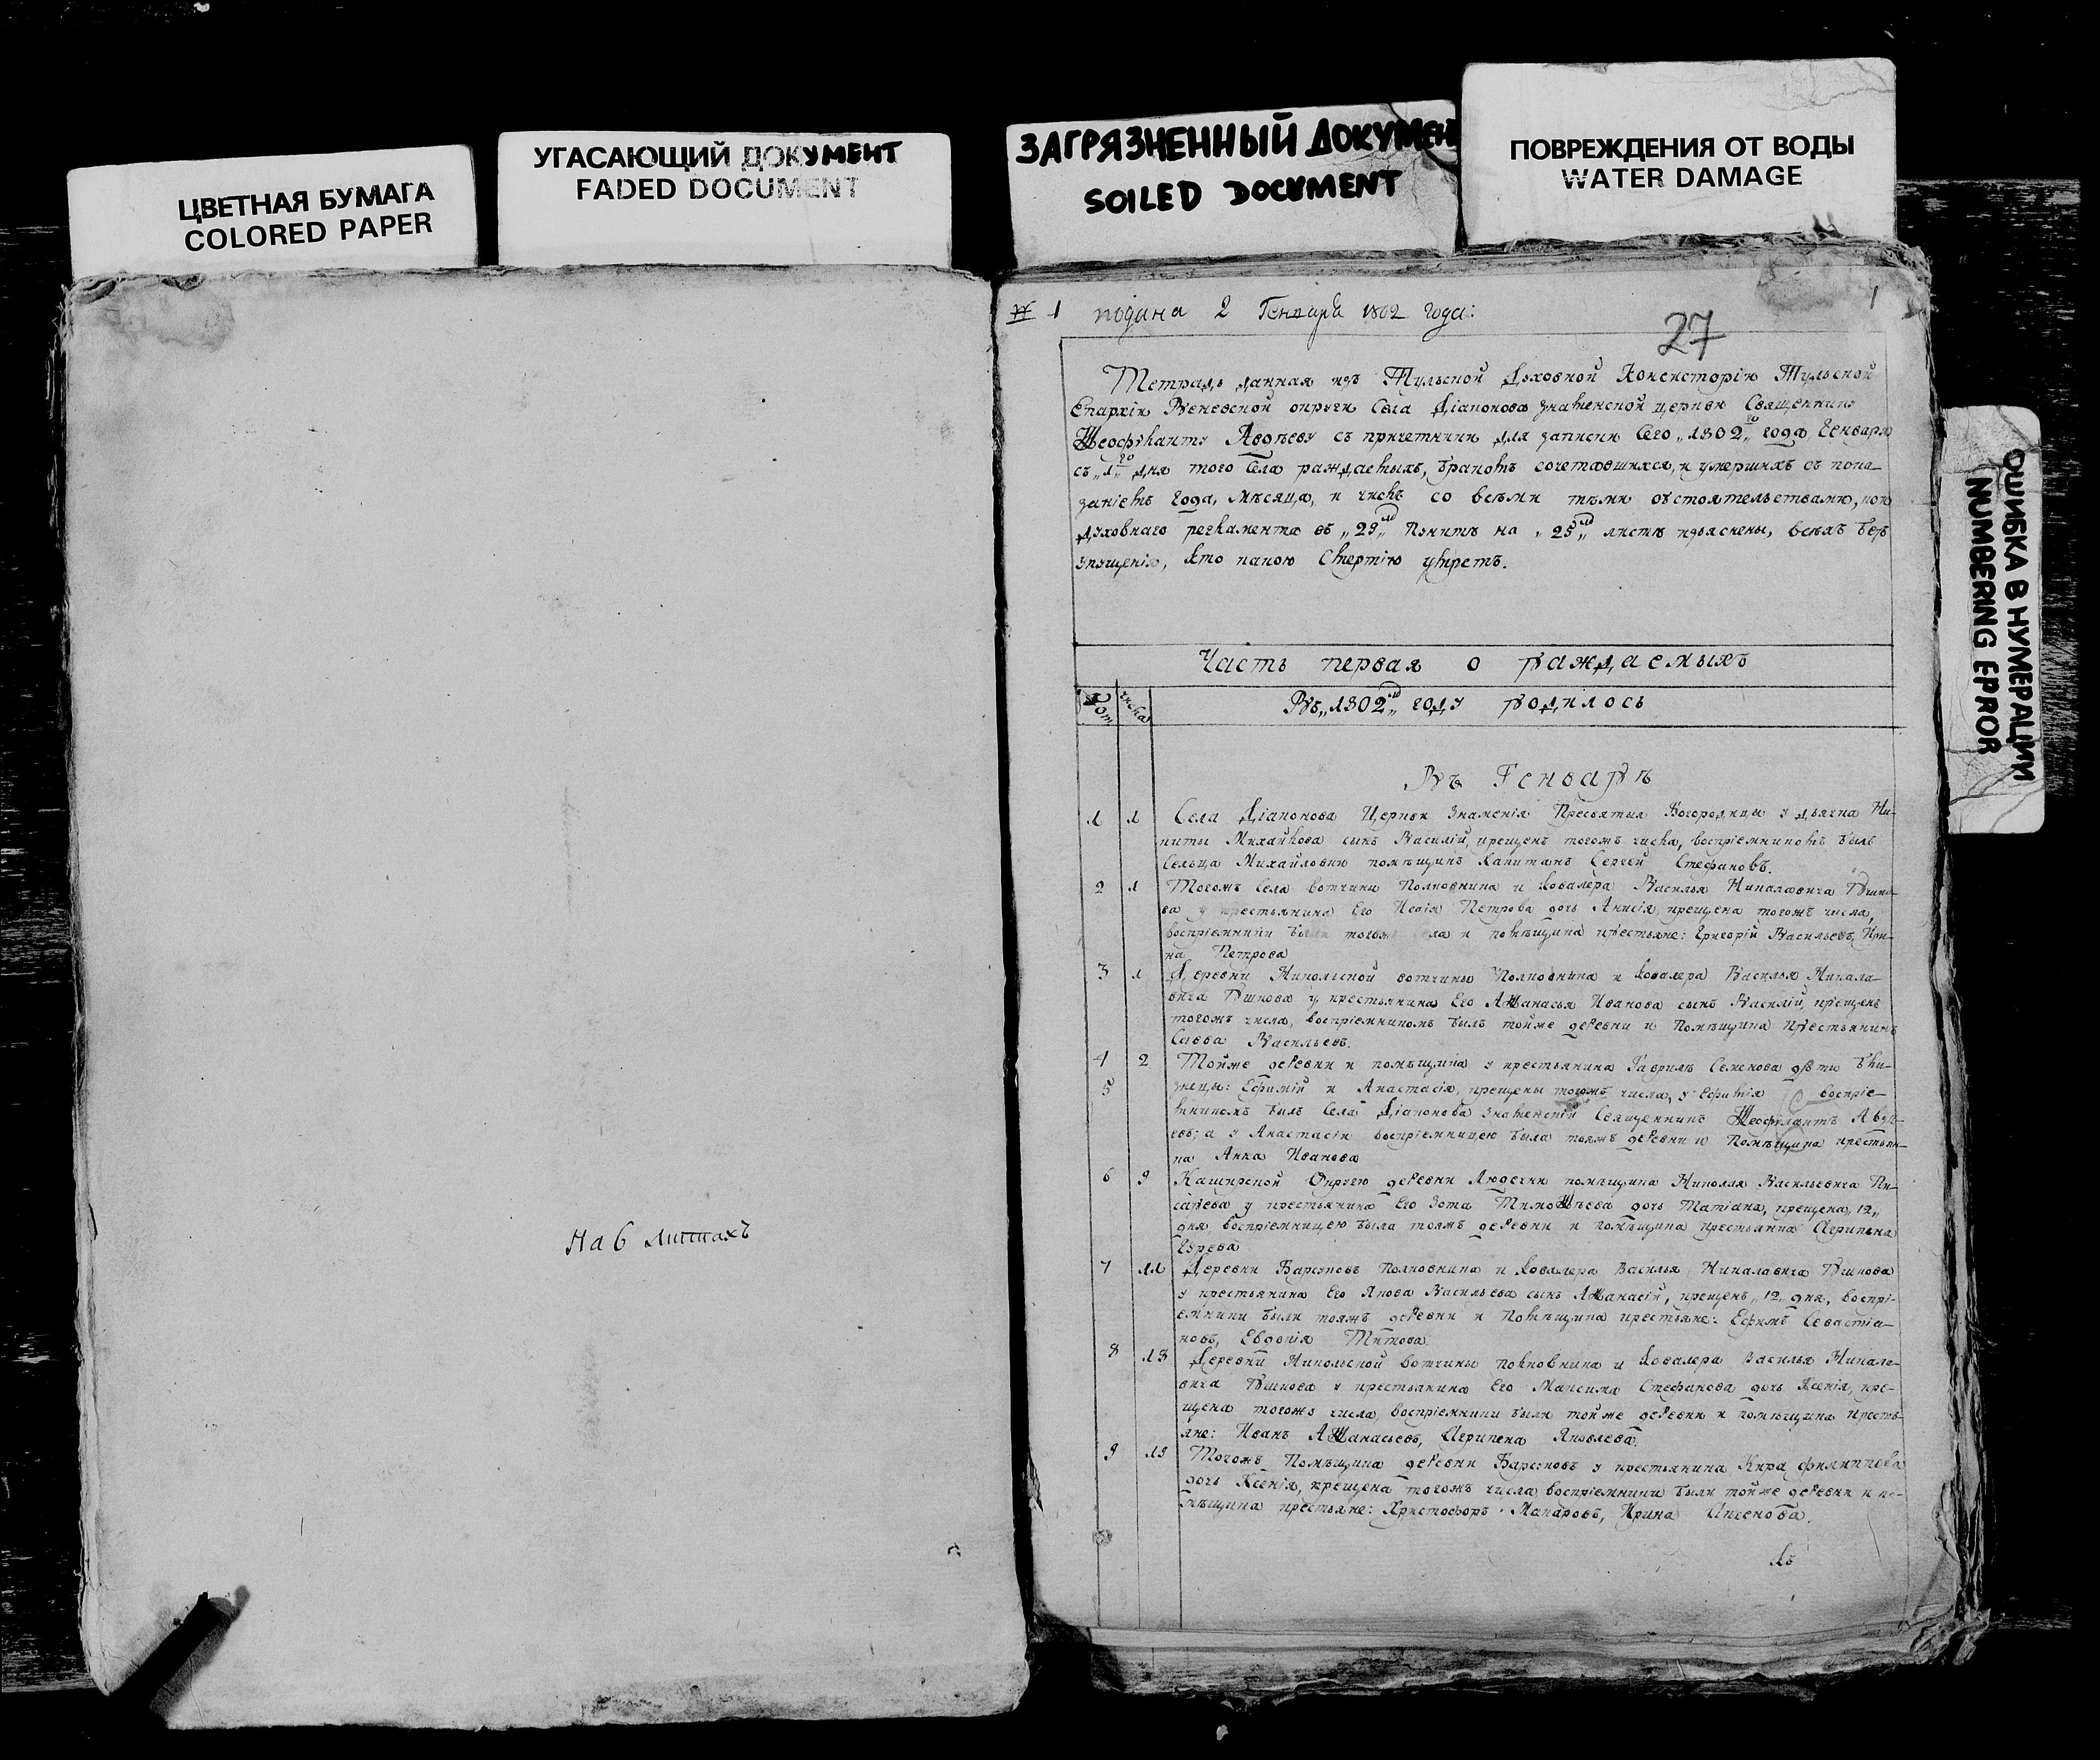 ЦВЕТНАЯ БУМАГА
COLORED PAPER
УГАСАЮЩИЙ ДОКУМЕНТ
FADED DOCUMENT
ЗАГРЯЗНЕННЫЙ ДОКУМЕН
SOILED DOCUMENT
ПОВРЕЖДЕНИЯ ОТ ВОДЫ
WATER DAMAGE
ОШИБКА В НУМЕРАЦИИ
NUMBERING ЕРРОR
На 6 листахъ
№ 1 подана 2 Генваря 1802 года:
1
27
Тетрадь данная изъ Тульской Духовной Консисторіи Тульской
Епархіи Веневской округи Села Діаконова знаменской церкви Священнику
Ѳеофилакту Авдѣеву съ причетники для записки Сего „1802„го года Генваря
съ „1„го дня того Села раждаемыхъ, бракомъ сочетавшихся, и умершихъ съ пока-
заніемъ года, мѣсяца, и числъ со всѣми тѣми обстоятельствами, кои
духовнаго регламента въ „29„мъ пунктѣ на „25„мъ листѣ изъяснены, всѣхъ безъ
упущенія, кто какою смертію умретъ.
Часть первая о раждаемыхъ
Счет числа
Въ „1802„мъ году родилось
Въ Генварѣ
1 1 Села Діаконова Церкви Знаменія Пресвятыя Богородицы у дьячка Ни-
киты Михайлова сынъ Василій, крещенъ тогожъ числа, воспріемникомъ былъ
Сельца Михайловки помѣщикъ Капитанъ Сергей Стефановъ.
2 1 Тогожъ Села вотчины Полковника и Ковалера Василья Николаевича
ва у крестьянина Его Исаія Петрова дочь Анисія, крещена тогожъ числа,
воспріемники были тогожъ села и помѣщика крестьяне: Григорій Васильевъ, Ири-
на Петрова
3 1 Деревни Никольской вотчины Полковника и Ковалера Василья Никола-
вича Ршкова у крестьянина Его Аѳанасья Иванова сынъ Василій, крещенъ
тогожъ числа, воспріемникомъ былъ тойже деревни и Помѣщика крестьянинъ
Савва Васильевъ.
4 2 Тойже деревни и помѣщика у крестьянина Гаврилъ Семенова дѣти бли-
5 знецы: Ефимій и Анастасія, крещены тогожъ числа, у Ефимія воспріе-
мникомъ былъ Села Діаконова знаменскій Священникъ Ѳеофилактъ Авдѣ-
евъ; а у Анастасіи воспріемницею была тояжъ деревни и Помѣщика крестьян-
ка Анна Иванова
6 9 Каширской Округи деревни Людечки помѣщика Николая Васильевича Пи-
сарева у крестьянина Его Зота Тимоѳѣева дочь Татіана, крещена „12„
дня, воспріемницею была тояжъ деревни и помѣщика крестьянка Агрипѣна
Гурева
7 11 Деревни Барсуковъ Полковника и Ковалера Василья Николавича Ршкова
у крестьянина Его Якова Васильева сынъ Аѳанасій, крещенъ „12„ дня, воспрі-
емники были тояжъ деревни и Помѣщика крестьяне: Ефимъ Севастіа-
новъ, Евдокія Титова
8 18 Деревни Никольской вотчины полковника и Ковалера Василья Никола-
вича Ршкова у крестьянина Его Максима Стефанова дочь Ксенія, кре-
щена тогожъ числа, воспріемники были тойже деревни и помѣщика кресть-
яне: Иванъ Аѳанасьевъ, Агрипена Яковлева.
9 19 Тогожъ Помѣщика деревни Барсуковъ у крестьянина Кира Филиппова
дочь Ксенія, крещена тогожъ числа воспріемники были тойже деревни и по-
мѣщика крестьяне: Христофоръ Макаровъ, Ирина